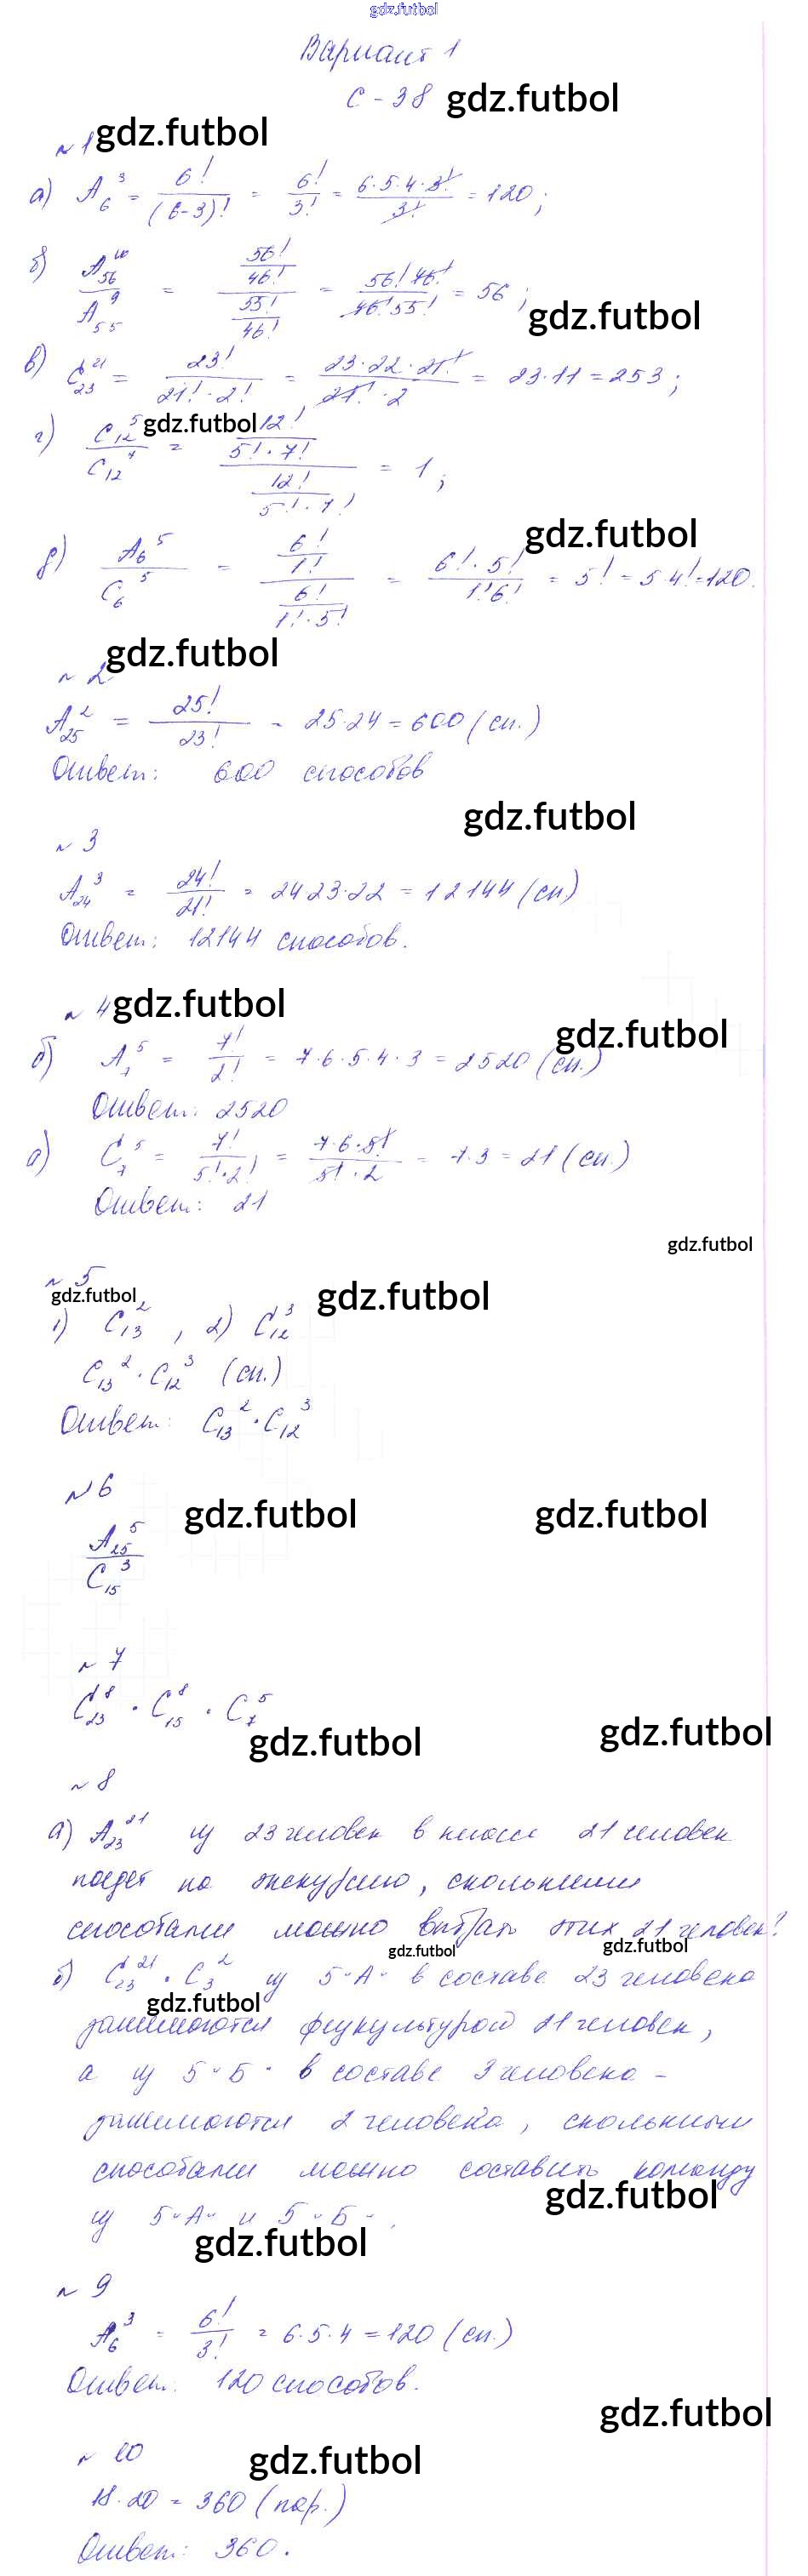 gdz.futbol
Вариант 1
С-38 gdz.futbol
№1 gdz.futbol
а) A₆³ = 6!/(6-3)! = 6!/3! = 6·5·4·3!/3! = 120;
б) A₅₆¹⁰/A₅₅⁹ = (56!/46!)/(55!/46!) = 56! 46!/46! 55! = 56;
gdz.futbol
в) C₂₃²¹ = 23!/21!·2! = 23·22·21!/21!·2 = 23·11=253;
gdz.futbol
г) C₁₂⁵/C₁₂⁷ = (12!/5!·7!)/(12!/5!·7!) = 1;
gdz.futbol
д) A₆⁵/C₆⁵ = (6!/1!)/(6!/1!·5!) = 6!·5!/1!6! = 5! = 5·4!=120.
№2 gdz.futbol
A₂₅² = 25!/23! = 25·24=600 (сп.)
Ответ: 600 способов
gdz.futbol
№3
A₂₄³ = 24!/21! = 24·23·22 = 12144 (сп)
Ответ: 12144 способов.
№4 gdz.futbol
gdz.futbol
б) A₇⁵ = 7!/2! = 7·6·5·4·3 = 2520 (сп.)
Ответ: 2520
а) C₇⁵ = 7!/5!·2! = 7·6·5!/5!·2 = 7·3 = 21 (сп.)
Ответ: 21
gdz.futbol
№5
gdz.futbol gdz.futbol
1) C₁₃², 2) C₁₂³
C₁₃²·C₁₂³ (сп.)
Ответ: C₁₃²·C₁₂³
№6
gdz.futbol gdz.futbol
A₂₅⁵/C₁₅³
№7
C₂₃⁸·C₁₅⁸·C₇⁵
gdz.futbol gdz.futbol
№8
а) A₂₃²¹ из 23 человек в классе 21 человек
поедет на экскурсию, сколькими
способами можно выбрать этих 21 человек?
gdz.futbol gdz.futbol
б) C₂₃²¹·C₃² из 5"А" в составе 23 человека
gdz.futbol
занимаются физкультурой 21 человек,
а из 5"Б" в составе 3 человека -
занимаются 2 человека, сколькими
способами можно составить команду
gdz.futbol
из 5"А" и 5"Б".
gdz.futbol
№9
A₆³ = 6!/3! = 6·5·4=120 (сп.)
Ответ: 120 способов.
gdz.futbol
№10 gdz.futbol
18·20 = 360 (пар.)
Ответ: 360.